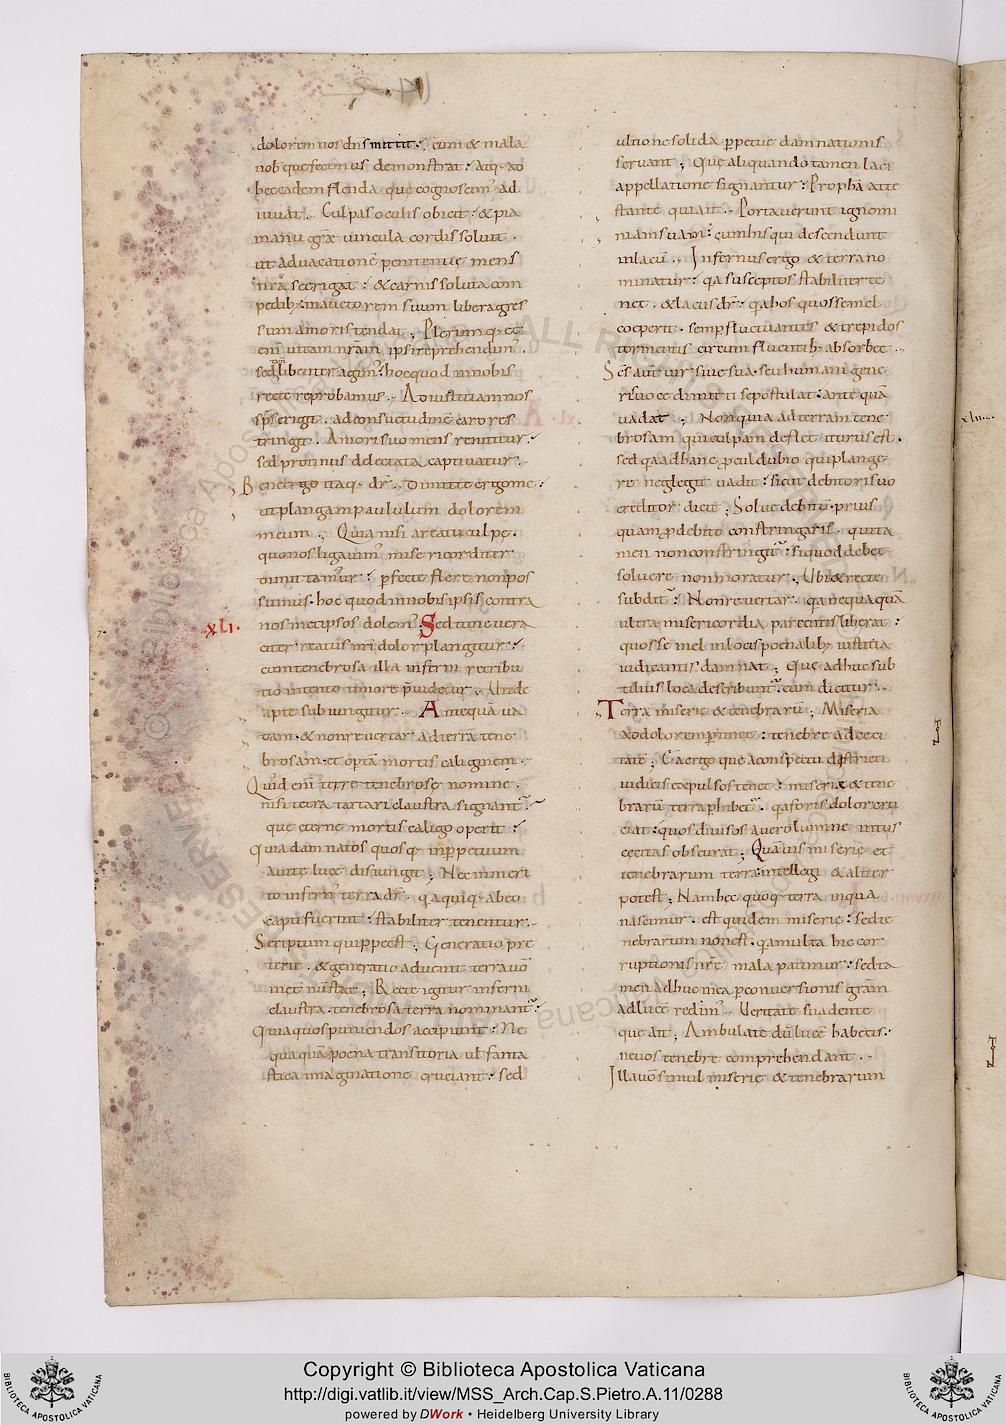 dolorem nos dn̄s mittit. cum & mala
nob que fecimus demonstrat: atq; ad
hec eadem flenda que cognoscem̄ ad
iuuat. Culpas oculis obicit: & pia
manu grã uincula cordis soluit.
ut ad uacationē penitentie mens
nr̄a se erigat: & carnis soluta con
pedib; in auctorem suum libera gres
sum amoris tendat; Plerumq; et
em̄ uitam nr̄am ipsi reprehendim̄.
sed tam̄ libenter agim̄. hoc quod in nobis
recte reprobamus. Ad iustitiam nos
sp̄s erigit. ad consuetudinē caro res
tringit. Amori suo mens renititur:
sed protinus delectata captiuatur.
Bene ergo itaq; dr̄. Dimitte ergo me:
ut plangam paululum dolorem
meum. Quia nisi a reatu culpe.
quo nos ligauim̄ misericorditer
dimittamur: perfecte flere non pos
sumus. hoc quod in nobis ipsis contra
XLI.
nosmetipsos dolem̄: Sed tunc uera
citer reatus nr̄i dolor plangitur:
cum tenebrosa illa inferni retribu
tio intento timore p̄uidetur. Unde
apte subiungitur. Antequā ua
dam. & non reuertar ad terrā tene
brosam. et optā mortis caligine.
Quid em̄ terre tenebrose nomine.
nisi tetra tartari claustra signant̄:
que eterne mortis caligo operit:
quia damnatos quosq; in perpetuum
a uite luce disiungit; Nec inmeri
to infern̄ terra dr̄. q̄a quiq; ab eo
capti fuerint: stabiliter tenentur.
Scriptum quippe est; Generatio pre
terit. & generatio aduenit terra uō
in et̄num stat; Recte igitur inferni
claustra. tenebrosa terra nominant̄:
Quia quos puniendos accipiunt: Ne
quaquā poena transitoria ul̄ fanta
stica imaginatione cruciant: sed
ultione solida p̄petue damnationis
seruant; Que aliquando tamen laci
appellatione signantur: Propha atte
stante qui ait. Portauerunt ignomi
niam suam: cum his qui descendunt
in lacū. Infernus ergo & terra no
minatur: q̄a susceptos stabiliter te
net. & lacus dr̄. q̄a hos quos semel
coeperit. semp fluctuantes & trepidos
tormentis circum fluentib; absorbet.
Sc̄s aut̄ uir siue sua. seu humani gene
ris uoce dimitti se postulat: ante quā
uadat; Non quia ad terram tene
brosam qui culpam deflet iturus est.
sed q̄a ad hanc procul dubio qui plange
re neglegit uadit: sicut debitori suo
creditor dicit; Solue debitū. prius
quam p debito constringaris. qui ta
men non constringit̄: si quod debet
soluere non moratur. Ubi & recte
subdit̄: Non reuertar. q̄a nequaquā
ultra misericordia parcentis liberat:
quos semel in locis poenalib; iustitia
iudicantis damnat; Que adhuc sub
tilius loca describunt̄. cum dicitur.
Terra miserie & tenebrarū; Miseria
ad dolorem pertinet: tenebre ad ceci
tatē; Ea ergo que a conspectu districti
iudicis expulsos tenet: miserie & tene
brarū terra phibet̄. q̄a foris dolor cru
ciat: quos diuisos a uero lumine intus
cecitas obscurat; Quāuis miserie et
tenebrarum terra intellegi & aliter
potest; Nam hec quoq; terra in qua
nascimur. est quidem miserie: sed te
nebrarum non est. q̄a multa hic cor
ruptionis nr̄e mala patimur: sed ta
men adhuc in ea p conuersionis gr̄am
ad lucē redim̄. Ueritate suadente
que ait; Ambulate dū lucē habetis.
ne uos tenebre comprehendant.
Illa uō simul miserie & tenebrarum
Copyright © Biblioteca Apostolica Vaticana
http://digi.vatlib.it/view/MSS_Arch.Cap.S.Pietro.A.11/0288
powered by DWork • Heidelberg University Library
BIBLIOTECA APOSTOLICA VATICANA
BIBLIOTECA APOSTOLICA VATICANA